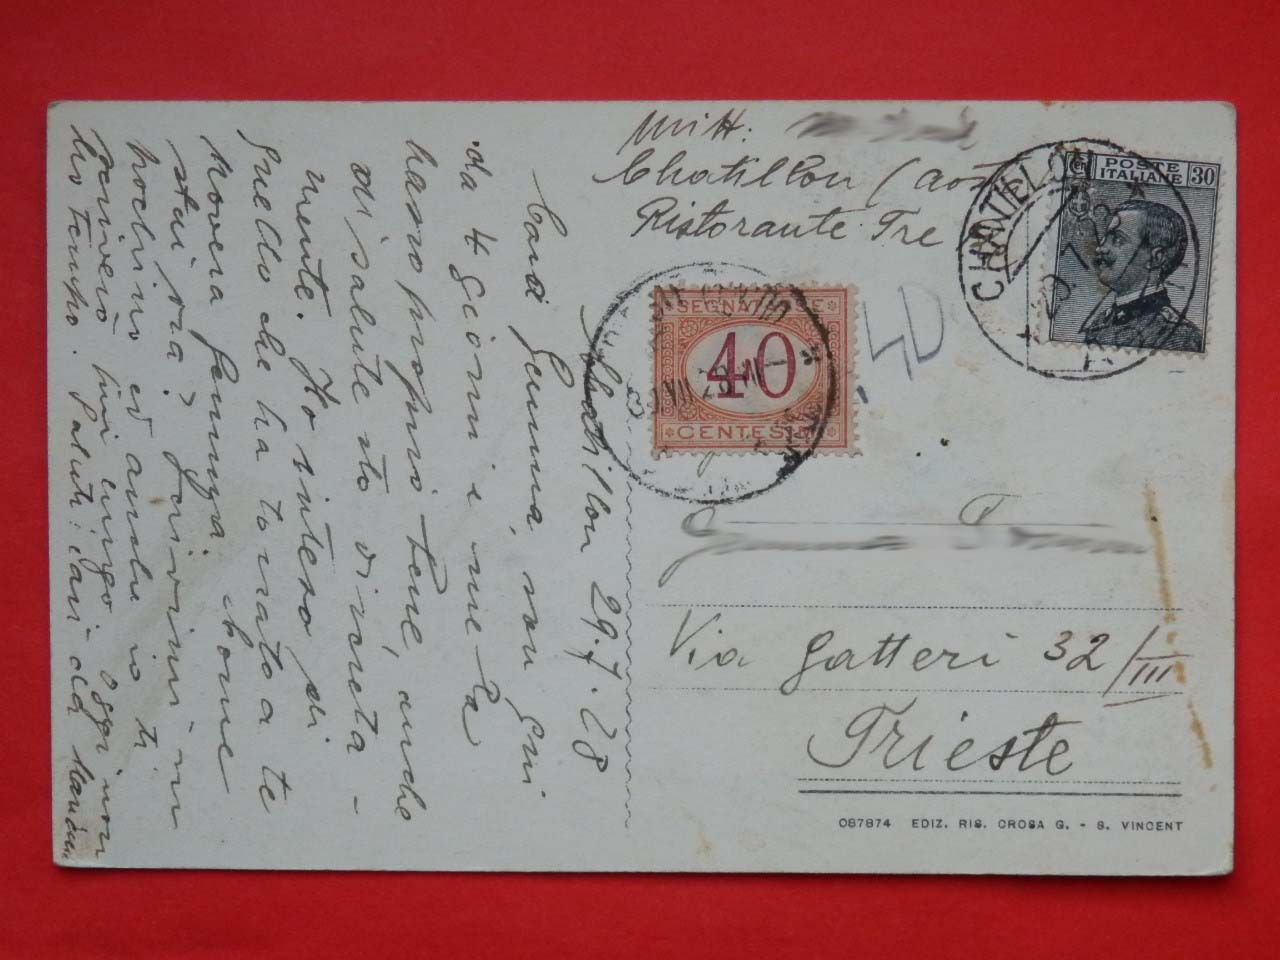 Mitt:
Chatillon (Aos
Ristorante Tre
CHATILLON
POSTE
ITALIANE
Cen 30
SEGNATASSE
40
CENTESIMI
40
Chatillon 29.7.28
Cara Gemma, son qui
da 4 giorni e me la
passo proprio bene, anche
di salute sto discreta-
mente. Ho inteso di
quello che ha torato a te
povera Come
stai ora? Scrivimi un
pochino ed anche io ti
scriverò più lungo. Oggi non
ho tempo. Saluti cari
Via Gatteri 32/III
Trieste
087874 EDIZ. RIS. CROSA G. - S. VINCENT